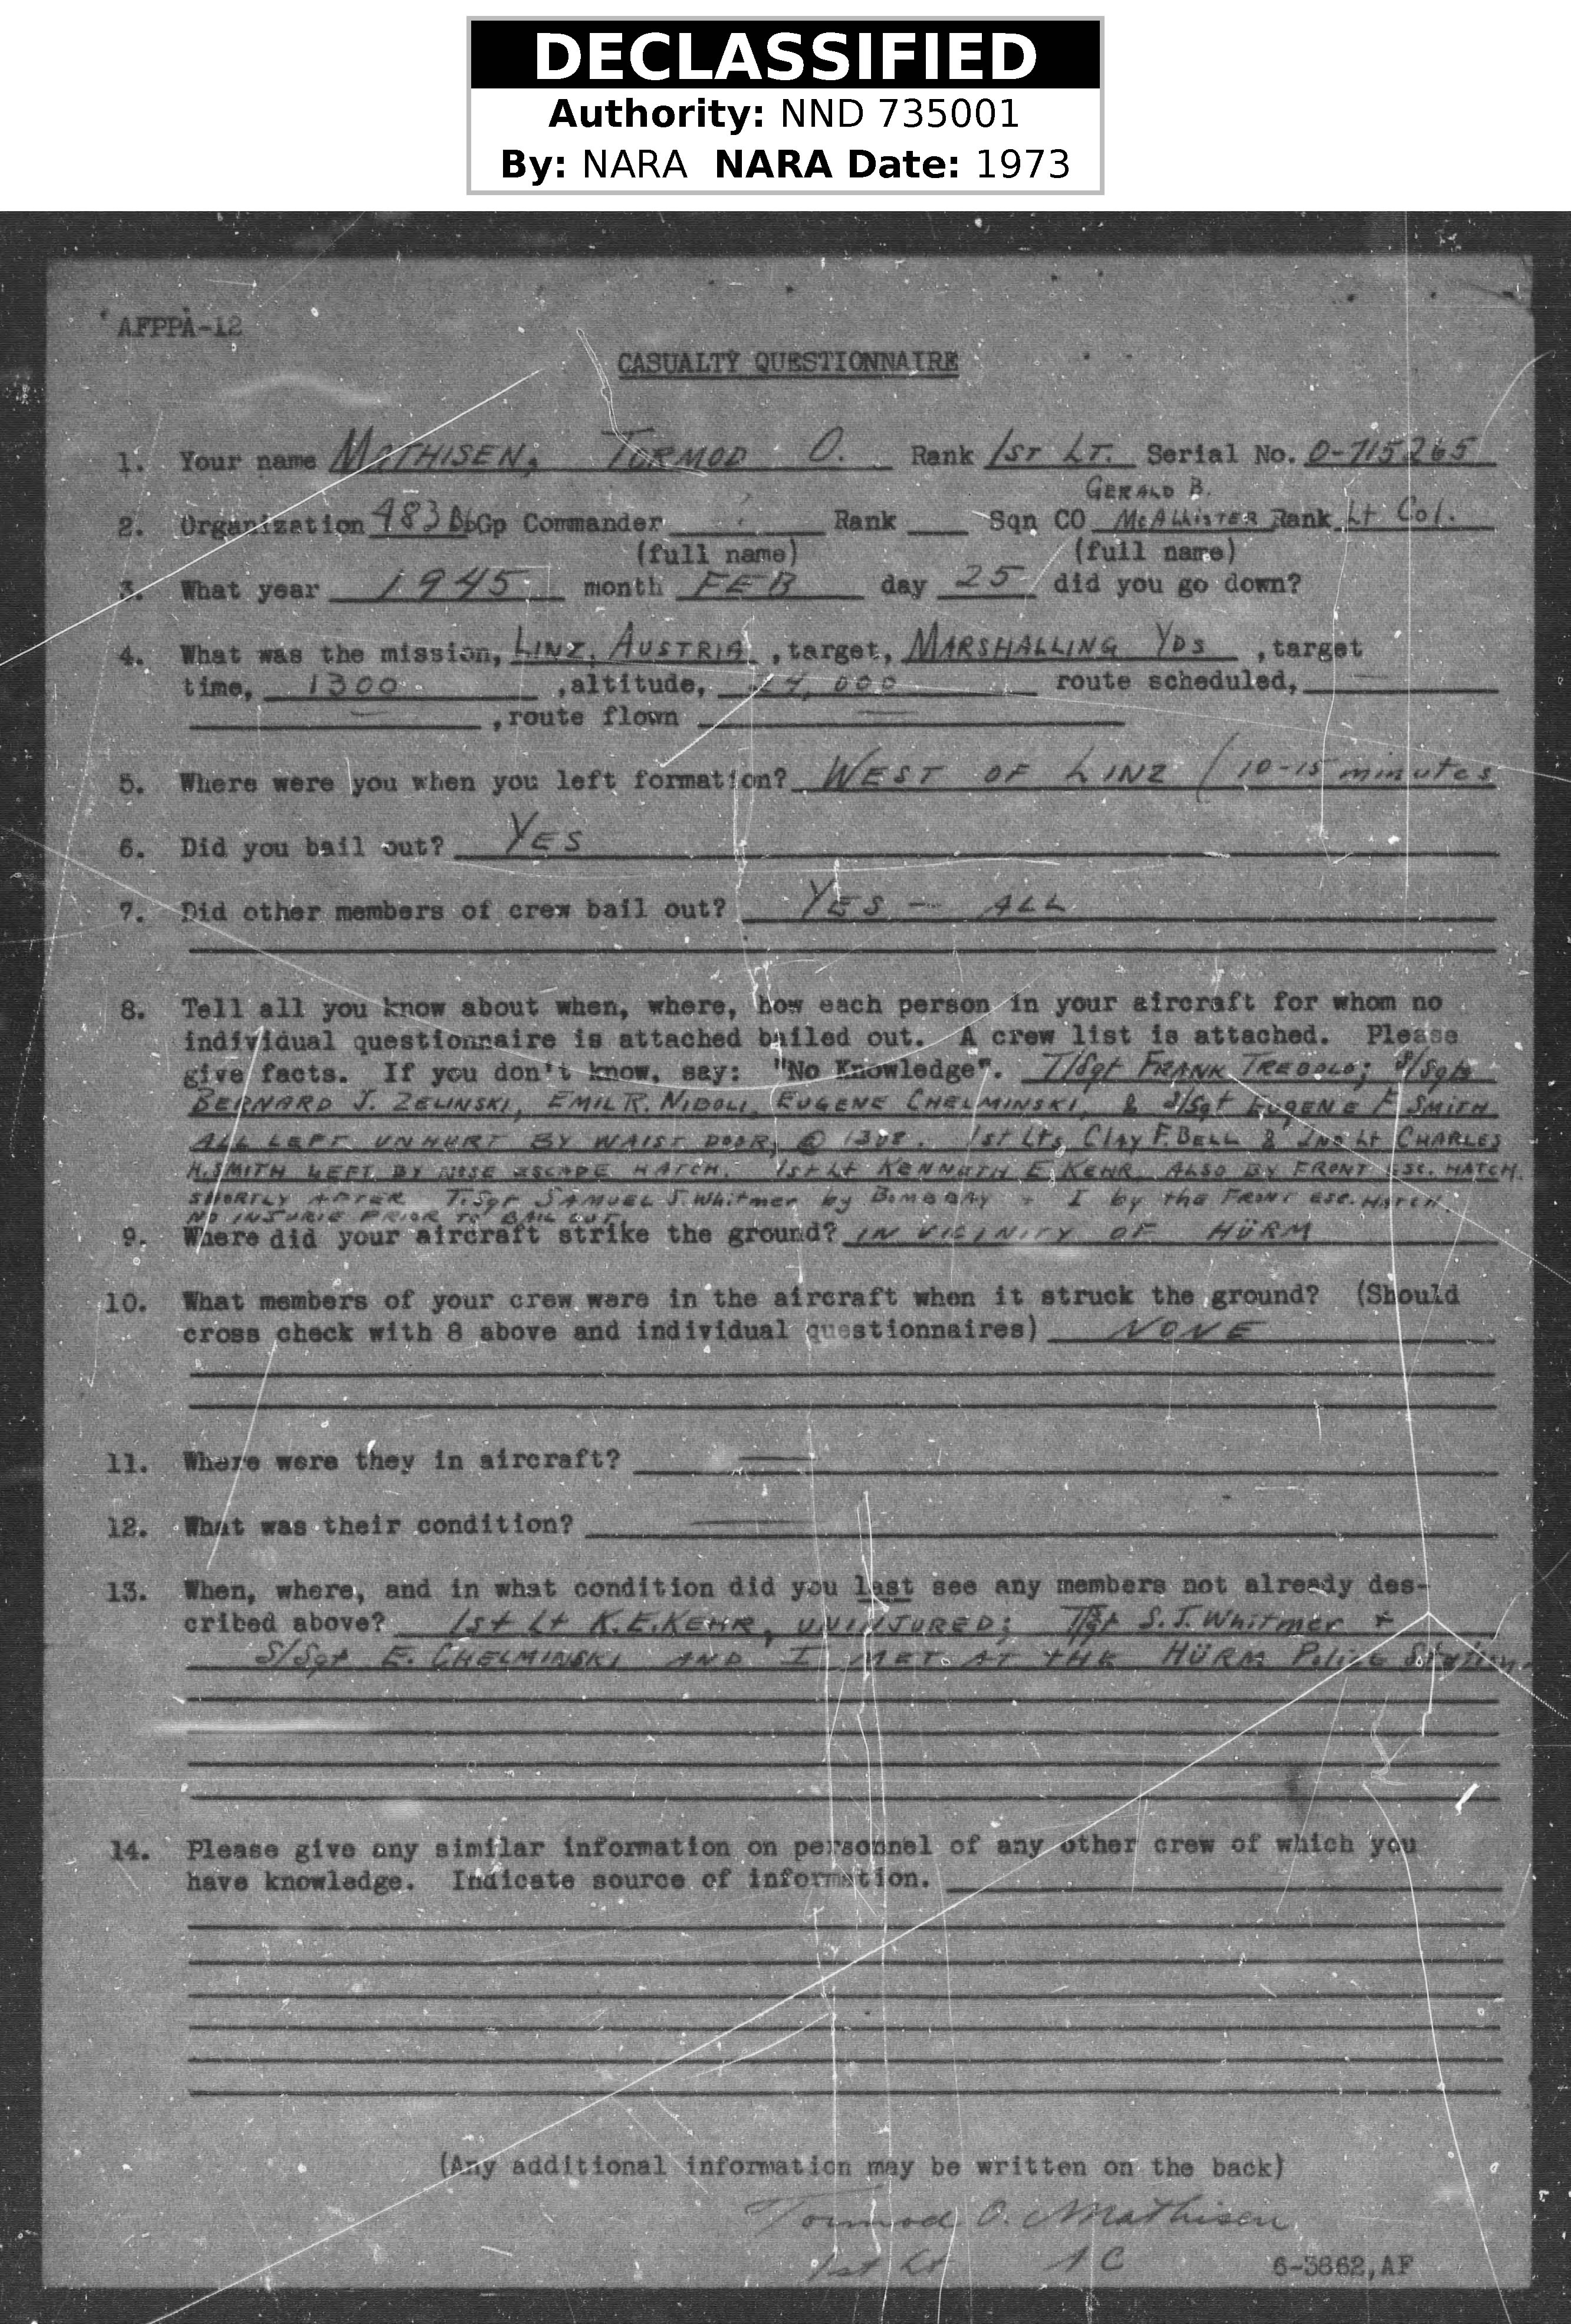 DECLASSIFIED
Authority: NND 735001
By: NARA NARA Date: 1973
AFPPA-12
CASUALTY QUESTIONNAIRE
1. Your name MATHISEN, TORMOD O. Rank 1ST LT. Serial No. O-715265
GERALD B.
2. Organization 483 Gp Commander Rank Sqn CO McALLISTER Rank Lt Col.
(full name) (full name)
3. What year 1945 month FEB day 25 did you go down?
4. What was the mission, LINZ, AUSTRIA, target, MARSHALLING YDS, target
time, 1300, altitude, 24,000 route scheduled, —
—, route flown —
5. Where were you when you left formation? WEST OF LINZ (10-15 minutes
6. Did you bail out? YES
7. Did other members of crew bail out? YES — ALL
8. Tell all you know about when, where, how each person in your aircraft for whom no
individual questionnaire is attached bailed out. A crew list is attached. Please
give facts. If you don't know, say: "No Knowledge". T/Sgt FRANK TREBOLO; S/Sgts
BERNARD J. ZELINSKI, EMIL R. NIDOLI, EUGENE CHELMINSKI, & S/Sgt EUGENE F SMITH
ALL LEFT UNHURT BY WAIST DOOR, @ 1308. 1st Lts, CLAY F. BELL & 2ND Lt CHARLES
H. SMITH LEFT BY NOSE ESCAPE HATCH. 1st Lt KENNETH E. KEHR ALSO BY FRONT ESC. HATCH.
SHORTLY AFTER T.Sgt SAMUEL J. Whitmer by BOMBBAY + I by the FRONT esc. HATCH.
NO INJURIE PRIOR TO BAIL OUT.
9. Where did your aircraft strike the ground? IN VICINITY OF HÜRM
10. What members of your crew were in the aircraft when it struck the ground? (Should
cross check with 8 above and individual questionnaires) NONE
11. Where were they in aircraft? —
12. What was their condition? —
13. When, where, and in what condition did you last see any members not already des-
cribed above? 1st Lt K.E. KEHR, UNINJURED; T/Sgt S.J. Whitmer +
S/Sgt E. CHELMINSKI AND I MET AT THE HÜRM Police Station.
14. Please give any similar information on personnel of any other crew of which you
have knowledge. Indicate source of information.
(Any additional information may be written on the back)
Tormod O. Mathisen
1st Lt AC
6-3862, AF